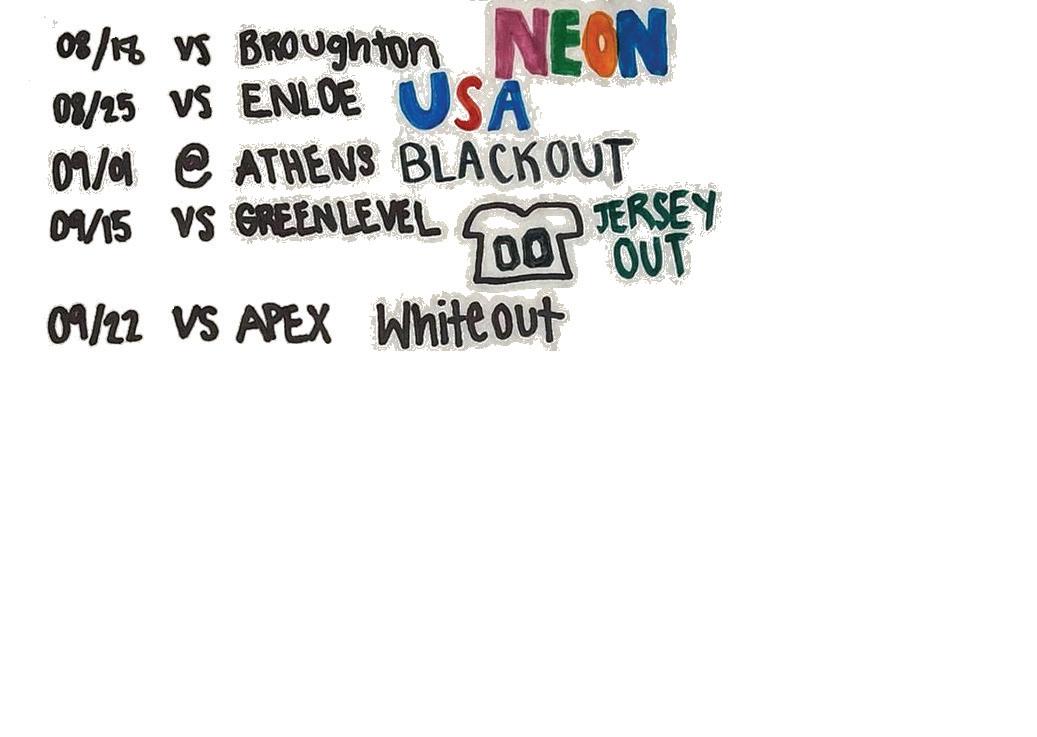 08/18 VS BROUghton NEON
08/25 VS ENLOE USA
09/01 @ ATHENS BLACKOUT
09/15 VS GREENLEVEL 00 JERSEY
OUT
09/22 VS APEX Whiteout